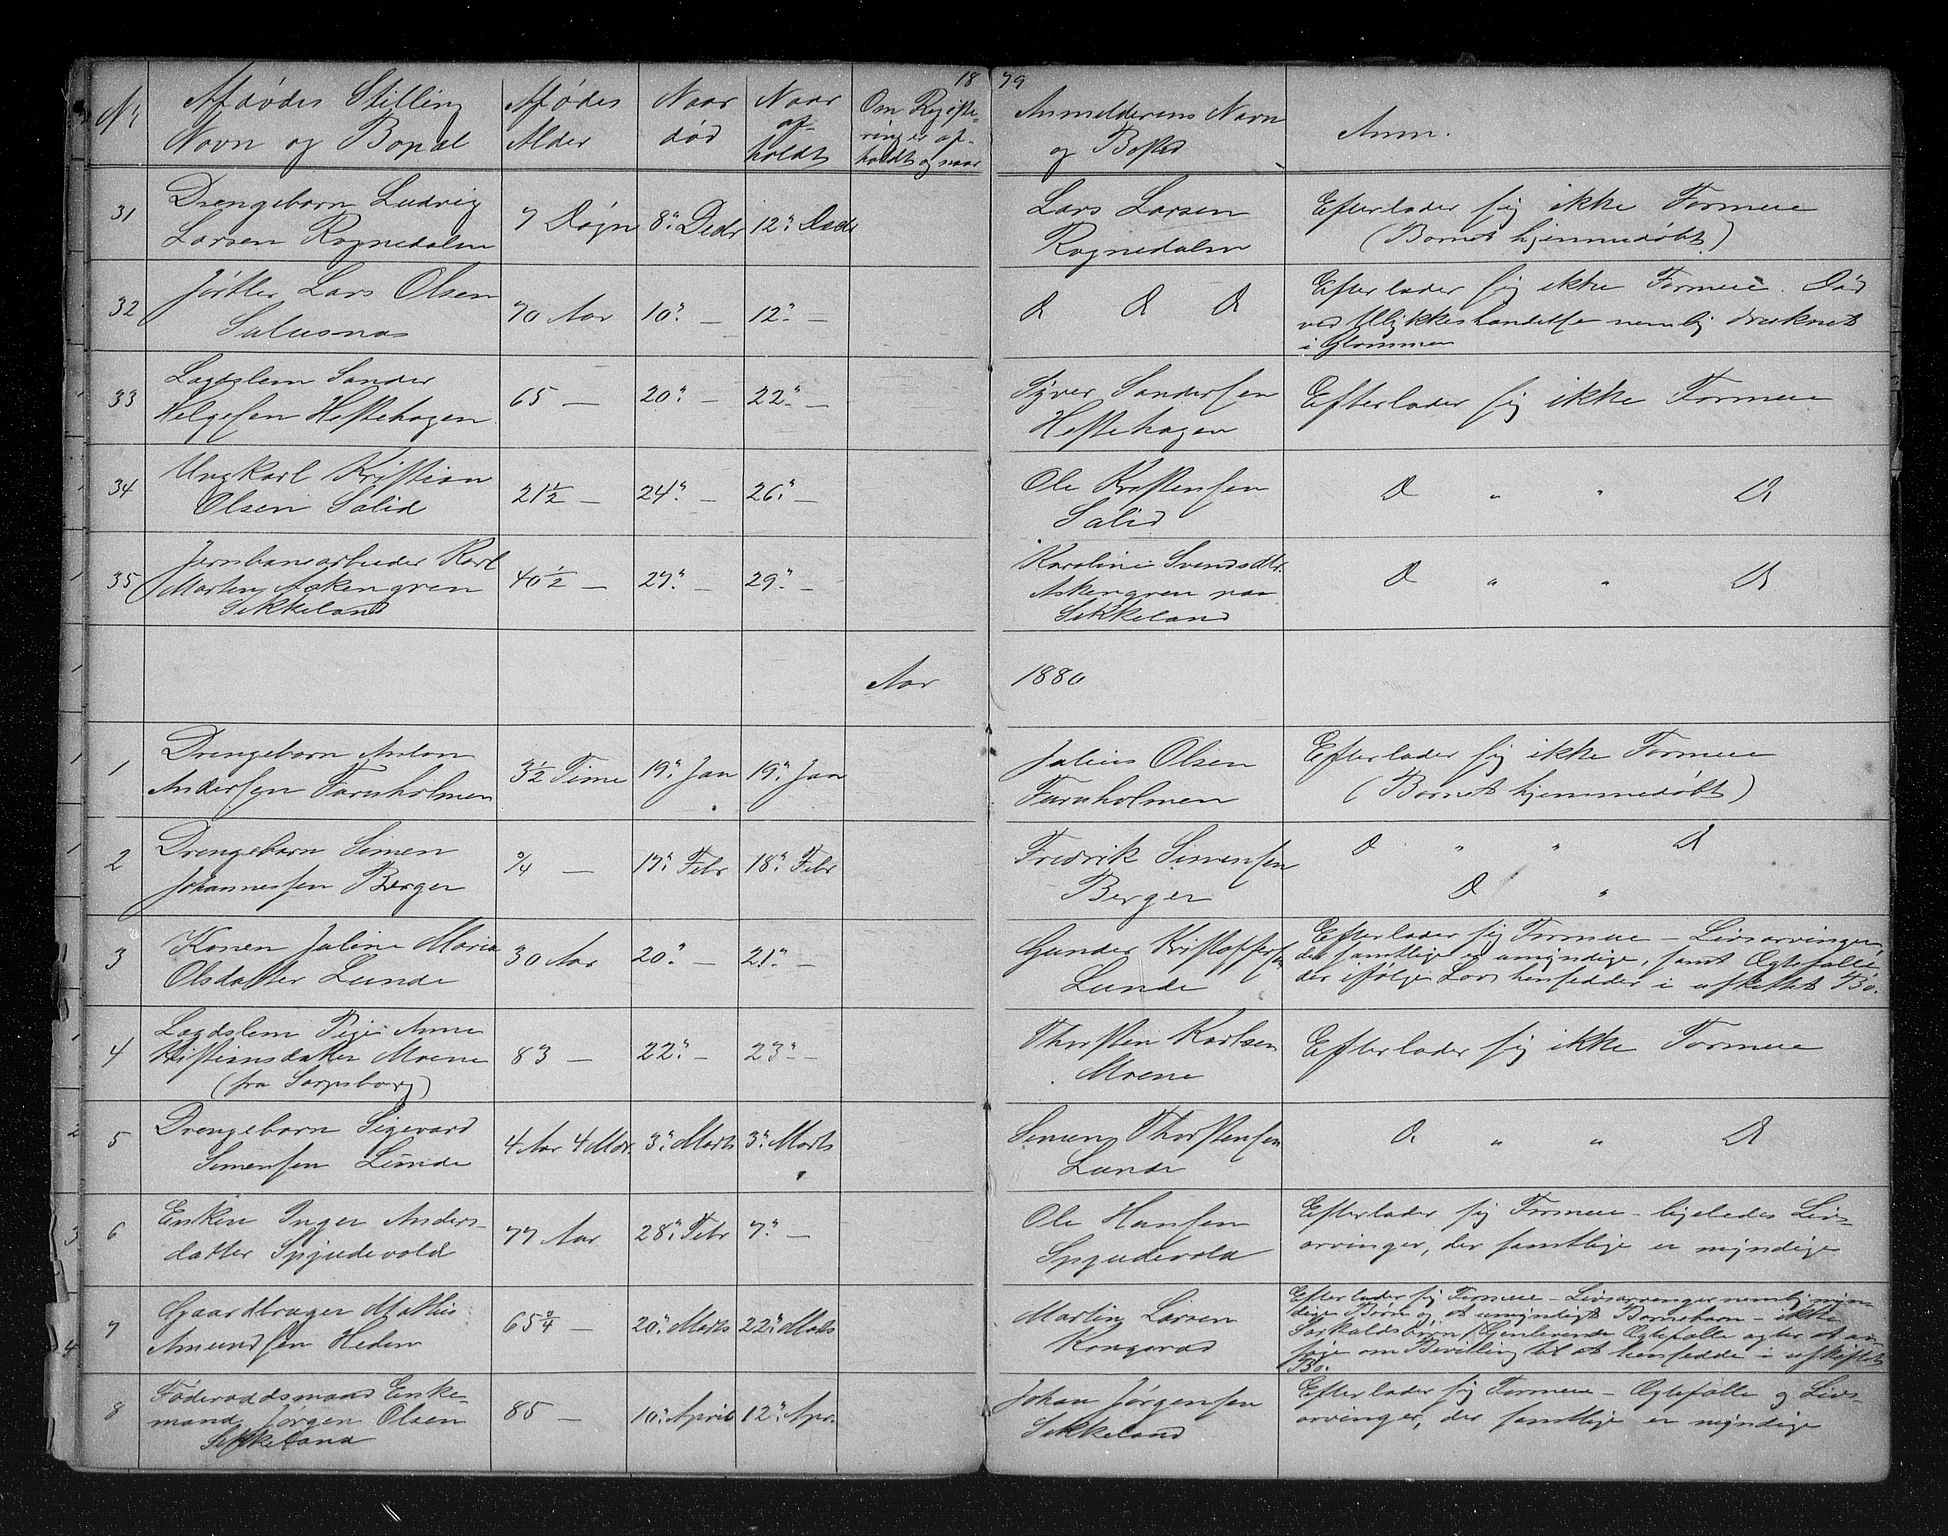 1879
No
Afdødes Stilling
Navn og Bopæl
Afdødes
Alder
Naar
død
Naar
af-
holdt
Om Registe-
ring er af-
holdt og naar
Anmelderens Navn
og Bosted
Anm.
31 Drengebarn Ludvig
Larsen Rognedalen
7 Døgn 8de Decbr 12te Decbr
Lars Larsen
Rognedalen
Efterlader sig ikke Formue
(Barnet hjemmedøbt)
32 Lars Olsen
70 Aar 10de — 12te —
D D D
Efterlader sig ikke Formue. Død
ved Ulykkeshændelse nemlig druknet
i Glommen
33 Lægdslem Sander
Helgesen Hestehagen
65 — 20de — 22de —
Syver Sandersen
Hestehagen
Efterlader sig ikke Formue
34 Ungkarl Kristian
Olsen Salid
21½ — 24de — 26de —
Ole Kristensen
Salid
D " " D
35 Jernbanearbeider Karl
Martin Askengren
Sikkeland
40½ — 27de — 29de —
Karoline Svendsdtr.
Askengren paa
Sikkeland
D " " D
Aar 1880
1 Drengebarn Anton
Andersen Furuholmen
3½ Time 19de Jan 19de Jan
Julius Olsen
Furuholmen
Efterlader sig ikke Formue
(Barnet hjemmedøbt)
2 Drengebarn Simen
Johannessen Berger
¾ — 17de Febr 18de Febr
Fredrik Simensen
Berger
D " " D
D "
3 Konen Juline Maria
Olsdatter Lunde
30 Aar 20de — 21de —
Gunder Kristoffersen
Lunde
Efterlader sig Formue — Livsarvinger,
der samtlige er umyndige, samt Ægtefælle
der ifølge Lov hensidder i uskiftet Bo.
4 Lægdslem Pige Anne
Kristiansdatter Moene
(fra Sarpsborg)
83 — 22de — 23de —
Thorsten Karlsen
Moene
Efterlader sig ikke Formue
5 Drengebarn Sigevard
Simensen Lunde
4 Aar 4 Mdr. 3de Marts 3de Marts
Simen Thorstensen
Lunde
D " " D
6 Enken Inger Anders-
datter Spydevold
77 Aar 28de Febr 7de —
Ole Hansen
Spydevold
Efterlader sig Formue — ligeledes Livs-
arvinger, der samtlige er myndige
7 Gaardbruger Mathis
Amundsen Heden
65¾ — 20de Marts 22de Marts
Martin Larsen
Kongerød
Efterlader sig Formue — Livsarvinger nemlig myn-
dige Børn og et umyndigt Barnebarn — ikke
Særkuldsbørn. Gjenlevende Ægtefælle agter at an-
søge om Bevilling til at hensidde i uskiftet
Bo.
8 Føderaadsmand Enke-
mand Jørgen Olsen
Sikkeland
85 — 10de April 12te Apr.
Johan Jørgensen
Sikkeland
Efterlader sig Formue — Ægtefælle og Livs-
arvinger, der samtlige er myndige